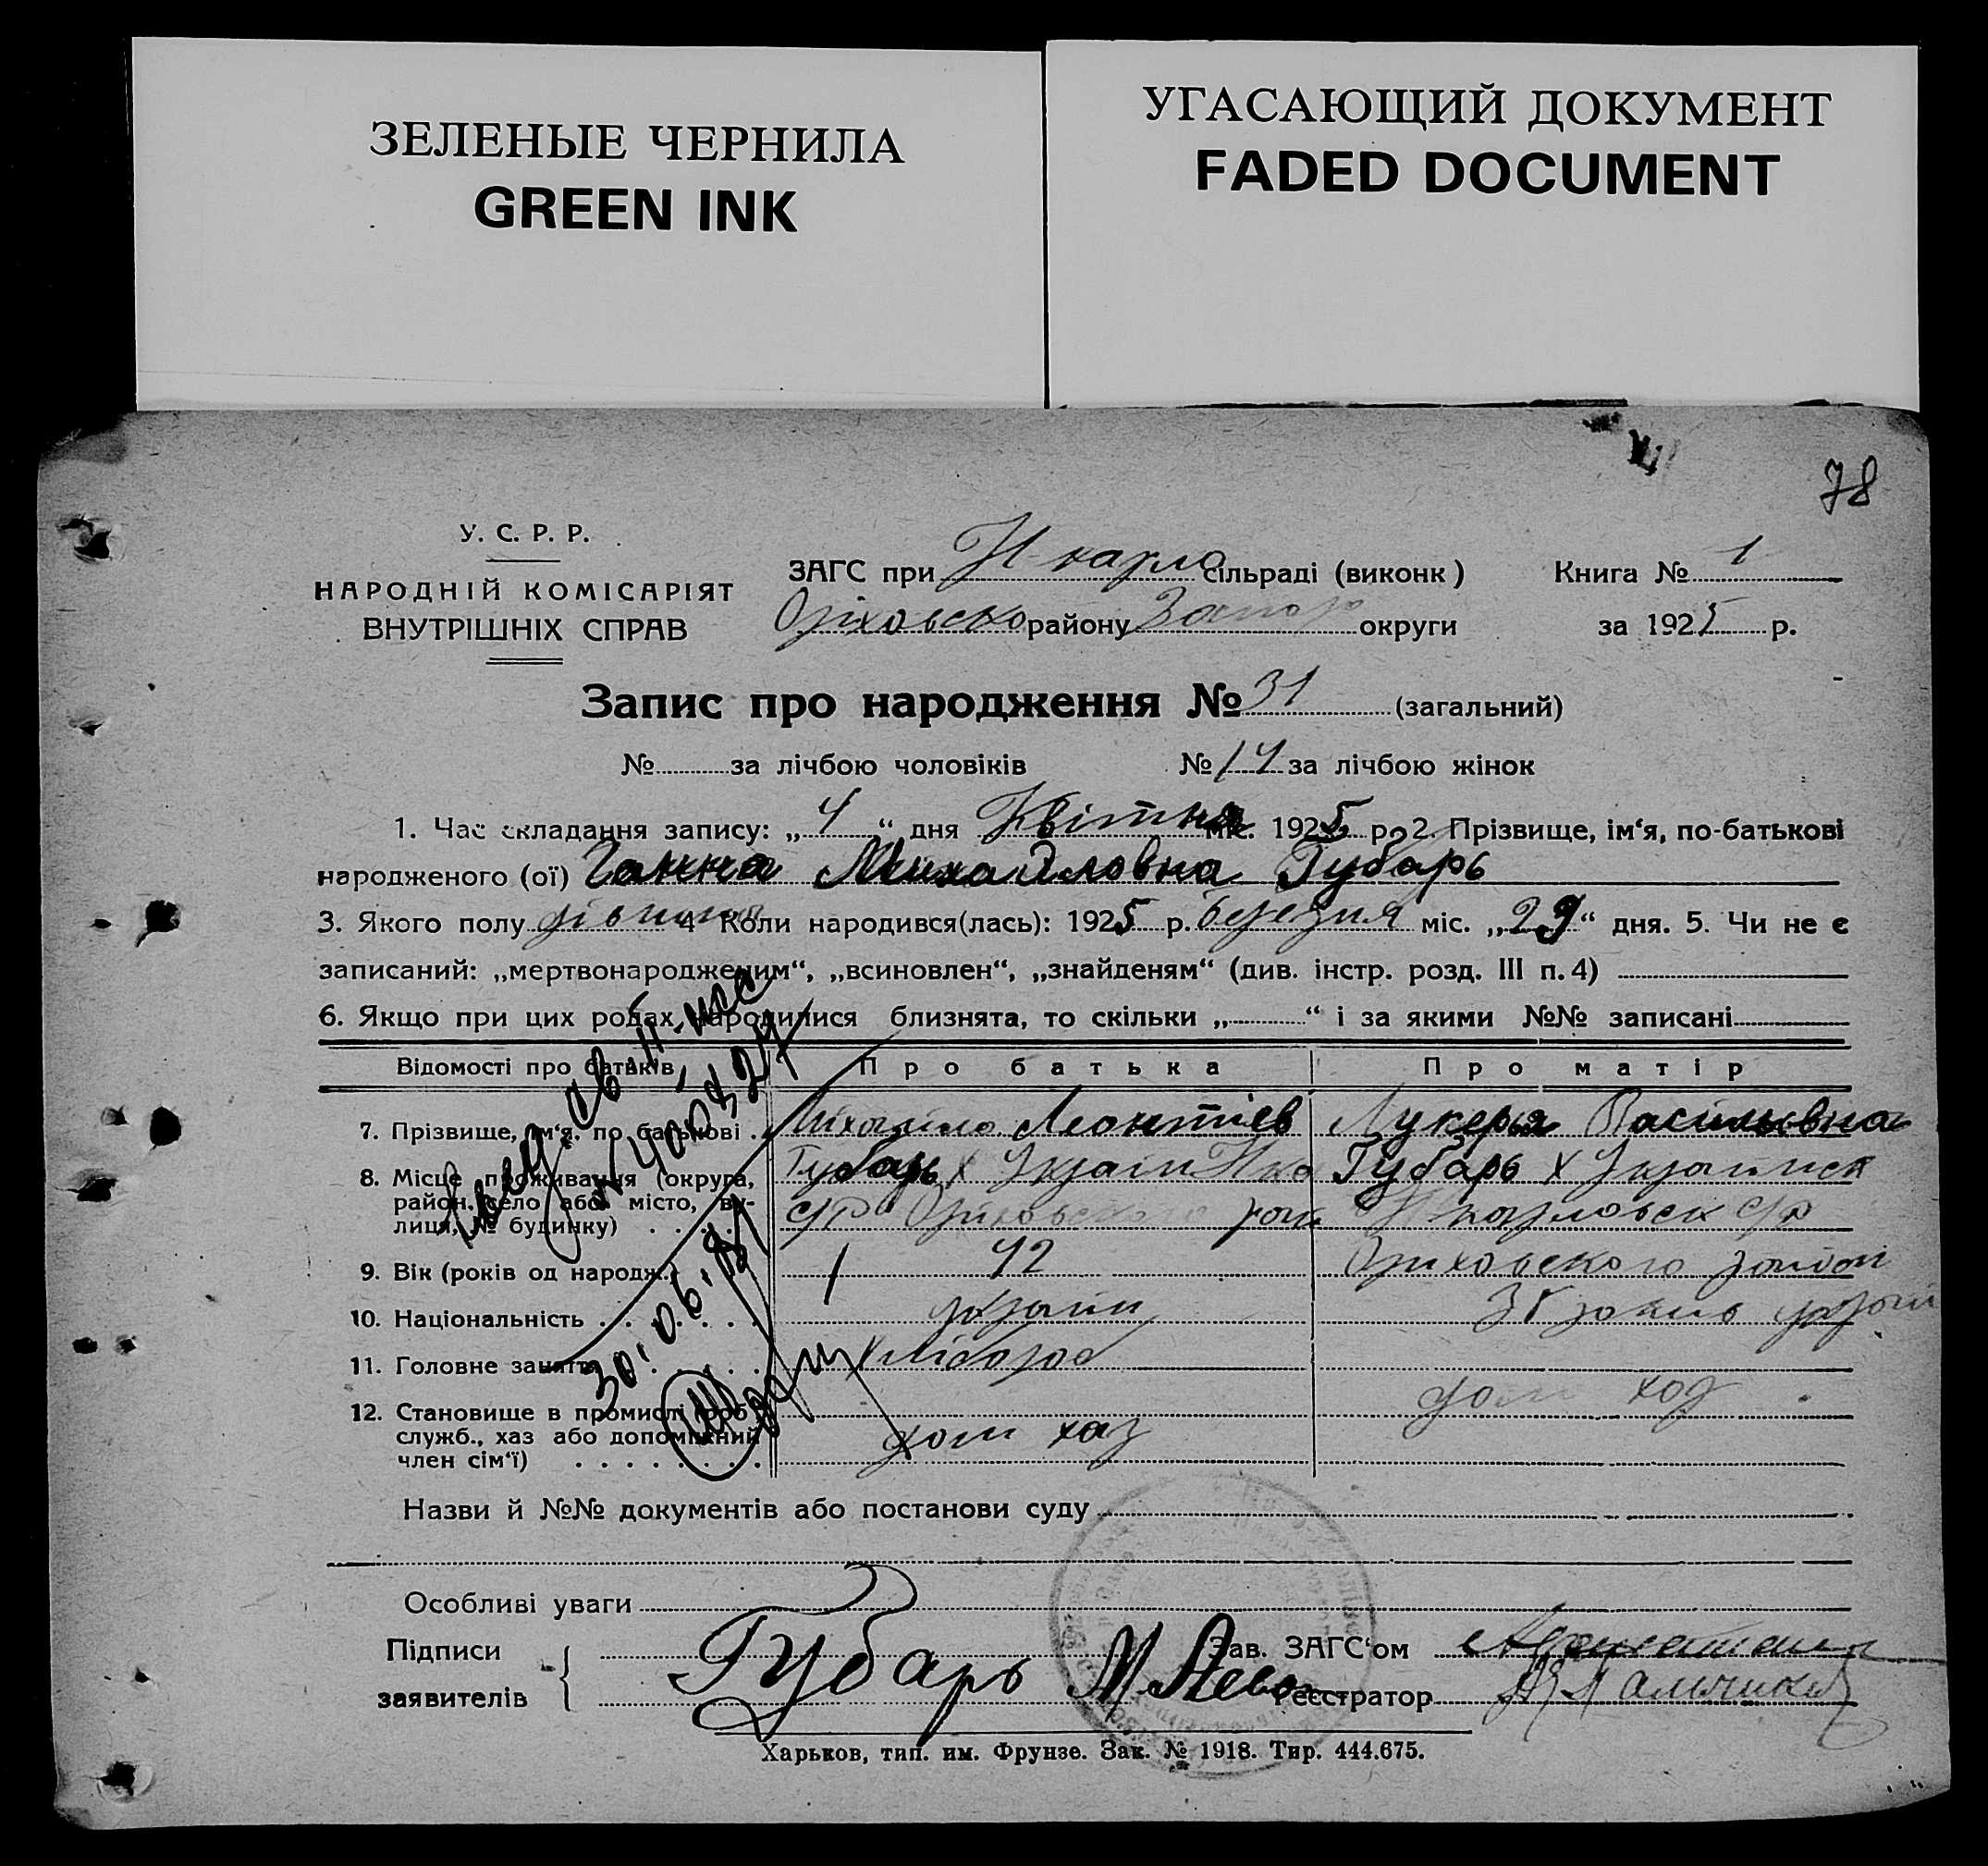 ЗЕЛЕНЫЕ ЧЕРНИЛА
GREEN INK
УГАСАЮЩИЙ ДОКУМЕНТ
FADED DOCUMENT
78
У. С. Р. Р.
НАРОДНІЙ КОМІСАРІЯТ
ВНУТРІШНІХ СПРАВ
ЗАГС при Н-карло сільраді (виконк)
Оріховско району Запор округи
Книга № 1
за 1925 р.
Запис про народження № 31 (загальний)
№ за лічбою чоловіків № 14 за лічбою жінок
1. Час складання запису: „4“ дня Квітня міс. 1925 р. 2. Прізвище, ім‘я, по-батькові
народженого (ої) Ганна Михайловна Губарь
3. Якого полу дівчина 4 Коли народився(лась): 1925 р. березня міс. „29“ дня. 5. Чи не є
записаний: „мертвонародженим“, „всиновлен“, „знайденям“ (див. інстр. розд. III п. 4)
6. Якщо при цих родах народилися близнята, то скільки „ “ і за якими №№ записані
Відомості про батьків Про батька Про матір
7. Прізвище, ім‘я, по батькові Михайло Леонтіев Лукерья Васильевна
8. Місце проживання (округа, Губарь х Україн Губарь х Україиск
район, село або місто, ву-
лиця, № будинку) с/р Оріховского рай карловск с/р
9. Вік (років од народж.) 42 Ориховского район
10. Національність україн
11. Головне заняття хлібороб
12. Становище в промислі (роб дом
служб., хаз або допоміжний дом хаз
член сім‘ї)
30.06.
Назви й №№ документів або постанови суду
Особливі уваги
Підписи
заявителів
Губарь М. Лево
Зав. ЗАГС‘ом
Реєстратор
Харьков, тип. им. Фрунзе. Зак. № 1918. Тир. 444.675.